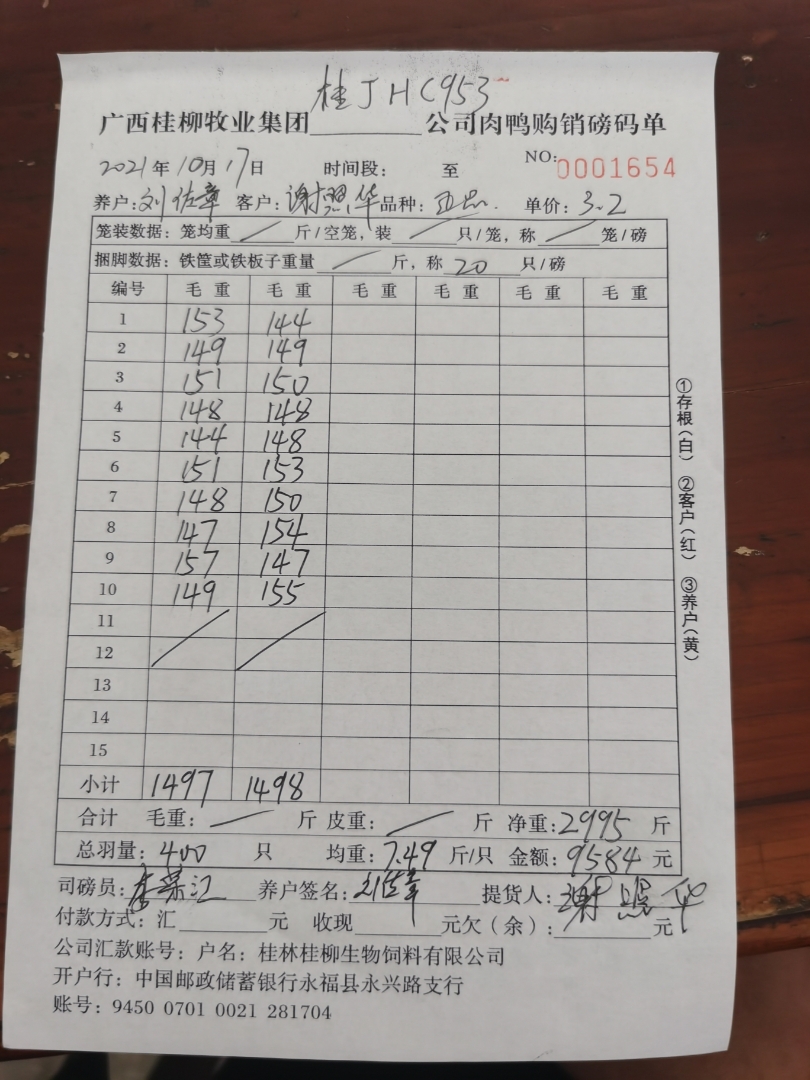 桂JHC953
广西桂柳牧业集团________公司肉鸭购销磅码单
2021年10月17日 时间段： 至 NO:0001654
养户:刘佐章 客户:谢照华 品种: 单价:3.2
笼装数据：笼均重 / 斤/空笼，装 / 只/笼，称 / 笼/磅
捆脚数据：铁筐或铁板子重量 / 斤，称 20 只/磅
编号 毛重 毛重 毛重 毛重 毛重 毛重
1 153 144
2 149 149
3 151 150
4 148 148
5 144 148
6 151 153
7 148 150
8 147 154
9 157 147
10 149 155
11
12
13
14
15
小计 1497 1498
合计 毛重： / 斤 皮重： / 斤 净重:2995 斤
总羽量：400 只 均重：7.49 斤/只 金额：9584 元
司磅员: 养户签名:刘佐章 提货人:谢照华
付款方式：汇________元 收现________元欠（余）：________元
公司汇款账号：户名：桂林桂柳生物饲料有限公司
开户行：中国邮政储蓄银行永福县永兴路支行
账号：9450 0701 0021 281704
①存根(白) ②客户(红) ③养户(黄)